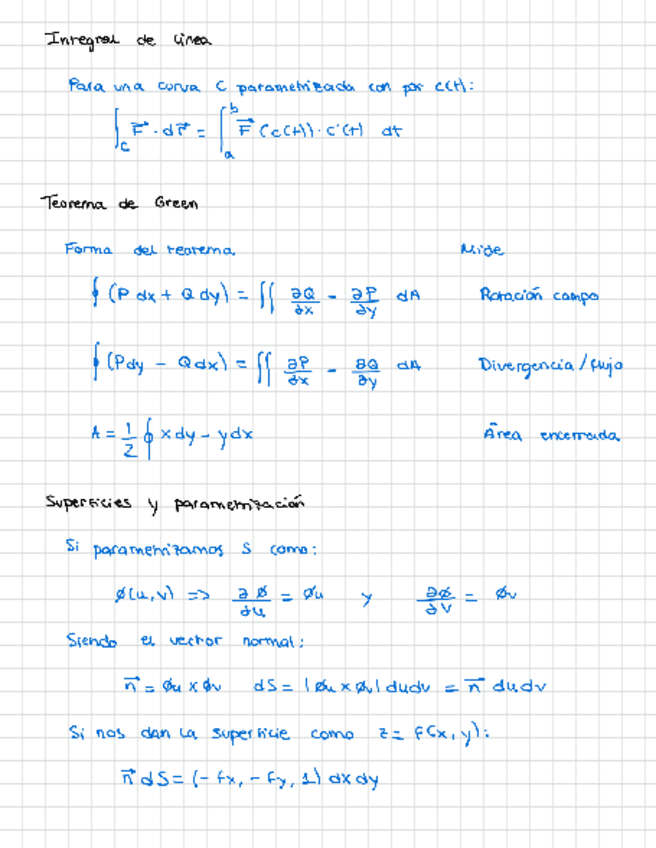 Integral de línea
Para una curva C parametrizada con por c(t):
∫_C F⃗ · dr⃗ = ∫_a^b F⃗ (c(t)) · c'(t) dt
Teorema de Green
Forma del teorema Mide
∮ (P dx + Q dy) = ∬ ∂Q/∂x - ∂P/∂y dA Rotación campo
∮ (P dy - Q dx) = ∬ ∂P/∂x - ∂Q/∂y dA Divergencia / flujo
A = 1/2 ∮ x dy - y dx Área encerrada
Superficies y parametrización
Si parametrizamos S como:
ø(u,v) => ∂ø/∂u = øu y ∂ø/∂v = øv
Siendo el vector normal:
n⃗ = øu x øv dS = |øu x øv| du dv = n⃗ du dv
Si nos dan la superficie como z = f(x,y):
n⃗ dS = (-fx, -fy, 1) dx dy